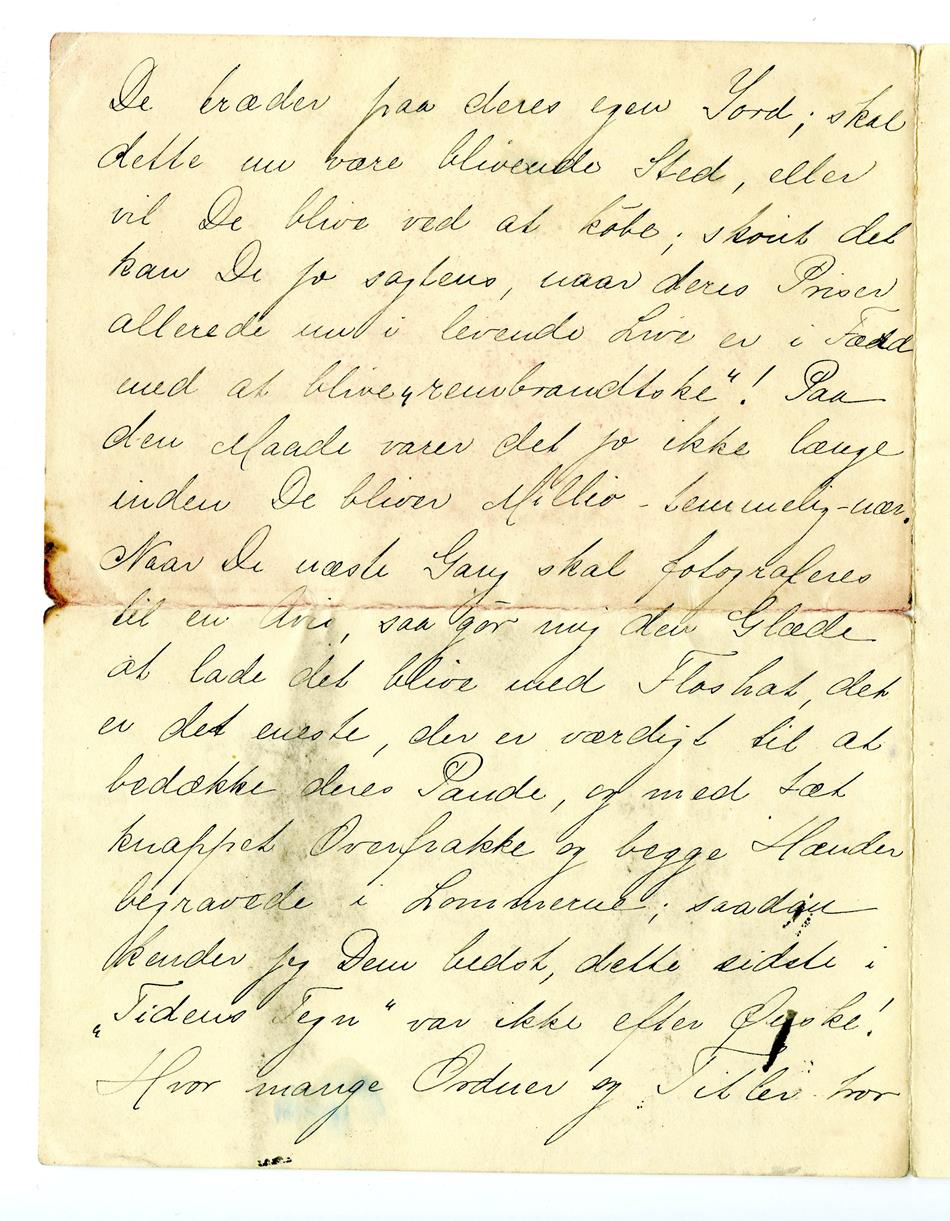 De træder paa deres egen Jord; skal
dette nu være blivende Sted, eller
vil De blive ved at købe; skønt det
kan De jo sagtens, naar deres Priser
allerede nu i levende Live er i Fædd
med at blive „rembrandtske“! Paa
den Maade varer det jo ikke længe
inden De bliver Millio - temmelig-nær.
Naar De næste Gang skal fotograferes
til en Avis, saa gør mig den Glæde
at lade det blive med Floshat, det
er det eneste, der er værdigt til at
bedække deres Pande, og med tæt
knappet Overfrakke og begge Hænder
begravede i Lommerne; saadan
kender jeg Dem bedst, dette sidste i
„Tidens Tegn“ var ikke efter Ønske!
Hvor mange Ordner og Titler tror